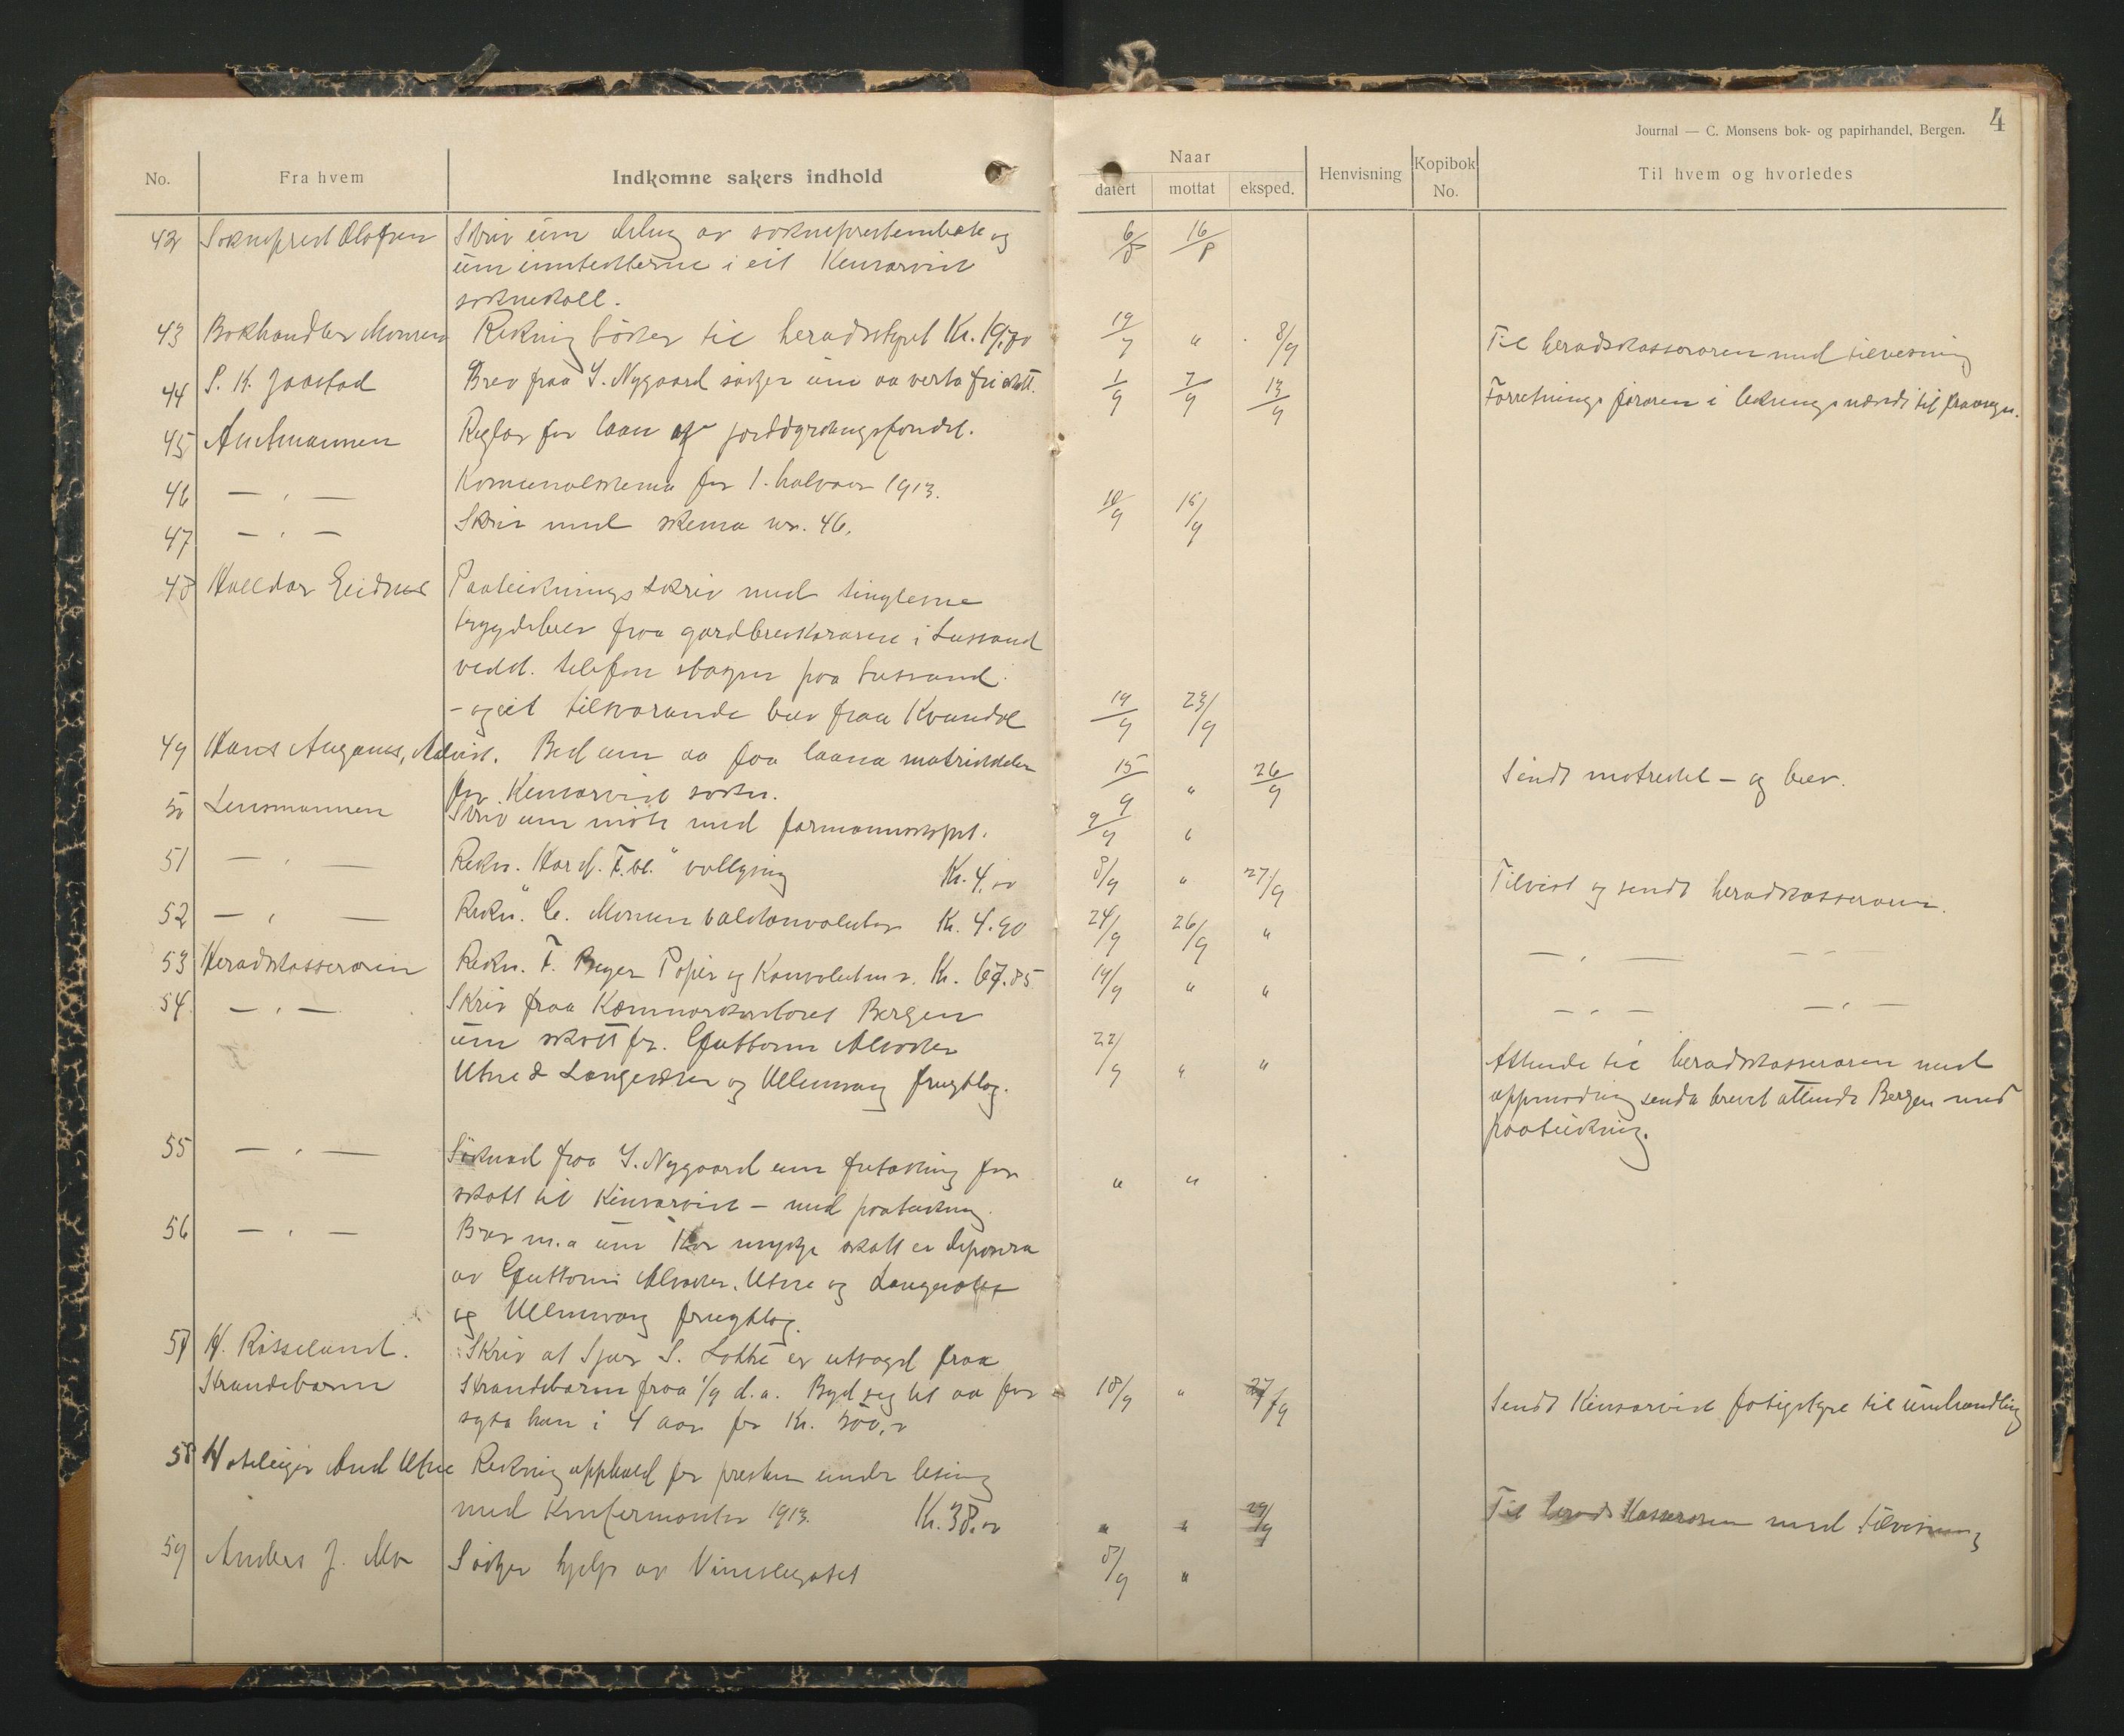 4
Journal — C. Monsens bok- og papirhandel, Bergen.
No. Fra hvem Indkomne sakers indhold Naar datert mottat eksped. Henvisning Kopibok No. Til hvem og hvorledes
42 Sokneprest Olafsen Skriv um deling av sokneprestembæte og 6/8 16/8
um inntekterne i eit Kinsarvik
soknekall.
43 Bokhandlar Monsen Rekning bøker til heradstyret Kr. 19,70 19/7 " 8/9 Til heradskasseraren med tilvising
44 P. H. Jaastad Brev fraa S. Nygaard søkjer um aa verta fri skatt. 1/9 7/9 13/9 Forretningsføraren i likningsnemdi til fraasegn.
45 Amtmannen Reglar for laan af jorddyrkingsfondet.
46 — " — Komunalskema for 1. halvaar 1913.
47 — " — Skriv med skema nr. 46. 10/9 15/9
48 Halldor Eidnes Paateiknings skriv med tinglesne
trygdebrev fraa gardbrukararne i Lussand
vedk. telefon stasjon paa Lussand.
- og eit tilsvarande brev fraa Kvandal 19/9 23/9
49 Hans Aaganes, Bed um aa faa laana matrikkelen 15/9 " 26/9 Sendt matrikkel - og brev.
for Kinsarvik sokn.
50 Lensmannen Skriv um møte med formannskapet. 9/9 "
51 — " — Rekn. "Hard. F. bl." vallysing Kr. 4,00 8/9 " 27/9 Tilvist og sendt heradskasseraren.
52 — " — Rekn. C. Monsen valkonvolutar Kr. 4.90 24/9 26/9 " — " — — " —
53 Heradskasseraren Rekn. F. Beyer Papir og Konvolutar Kr. 67.85 19/9 " " — " — — " —
54 — " — Skriv fraa Kæmnarkontoret Bergen
um skatt for Guttorm Alsaker 22/9 " " Attende til heradskasseraren med
Utne & Langesæter og Ullensvang fruktlag. uppmoding senda brevet attende Bergen med
paateikning.
55 — " — Søknad fraa S. Nygaard um fritaking for " "
skatt til Kinsarvik - med paateikning.
56 — " — Brev m. a um kor mykje skatt er deponera
av Guttorm Alsaker, Utne og Langesæter
og Ullensvang fruktlag.
57 H. Røsseland. Skriv at Sjur S. Lothe er utsagd fraa
Strandebarm Strandebarm fraa 1/9 d. a. Byd seg til aa for 18/9 " 27/9 Sendt Kinsarvik fatigstyre til umhandling
syta han i 4 aar for Kr. 500,-
58 Hotelleigar And Utne Rekning upphald for presten under lesing
med konfirmantar 1913. Kr. 38.00 " " 29/9 Til heradskasseraren med tilvising
59 Anders J. Mo Søkjer hjelp av Vinslegatet 8/9 "